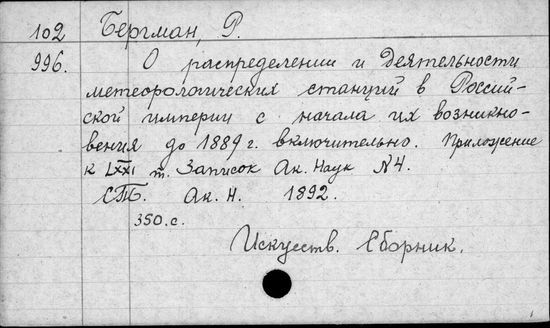 102 Бергман, Р.
996. О распределении и деятельности
метеорологических станций в Россий-
ской империи с начала их возникно-
вения до 1889 г. включительно. Приложение
к LXXI т. Записок Ак. Наук № 4.
СПБ. Ак. Н. 1892.
350.с.
Искусств. Сборник.